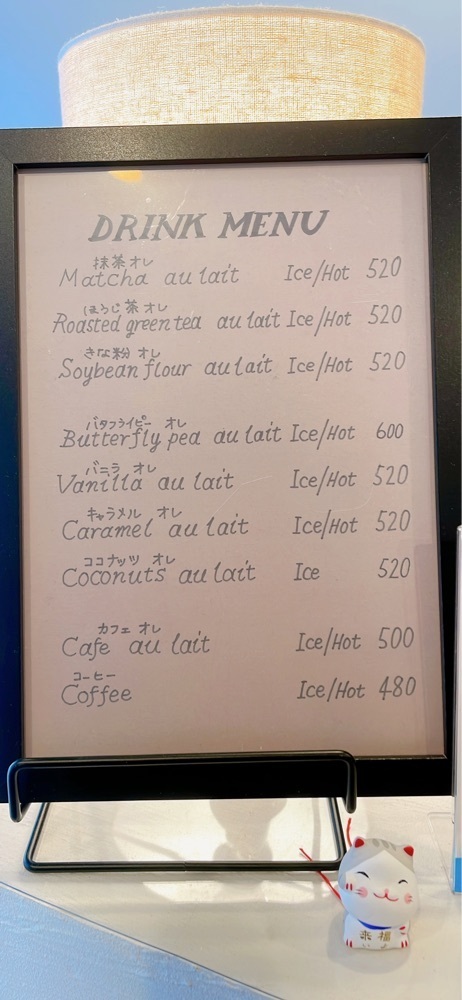 DRINK MENU
抹茶 オレ
Matcha au lait Ice/Hot 520
ほうじ茶 オレ
Roasted green tea au lait Ice/Hot 520
きな粉 オレ
Soybean flour au lait Ice/Hot 520
バタフライピー オレ
Butterfly pea au lait Ice/Hot 600
バニラ オレ
Vanilla au lait Ice/Hot 520
キャラメル オレ
Caramel au lait Ice/Hot 520
ココナッツ オレ
Coconuts au lait Ice 520
カフェ オレ
Cafe au lait Ice/Hot 500
コーヒー
Coffee Ice/Hot 480
来福